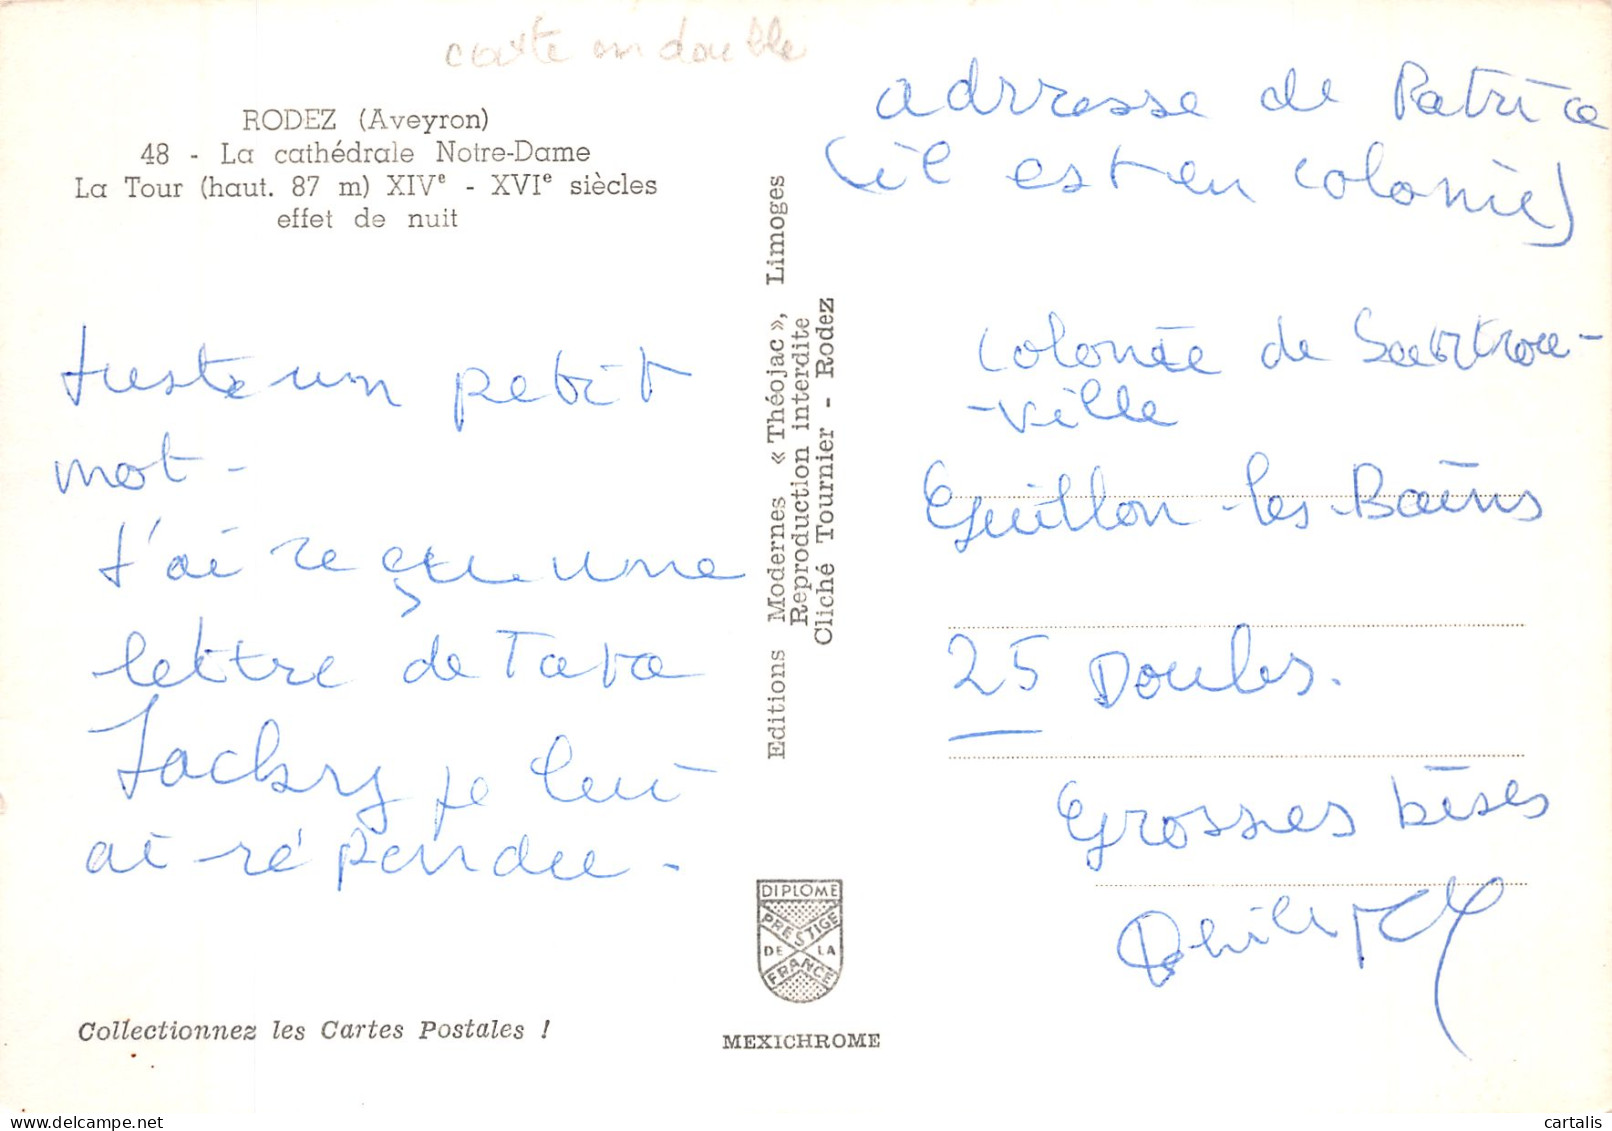 carte en double
RODEZ (Aveyron)
48 - La cathédrale Notre-Dame
La Tour (haut. 87 m) XIVe - XVIe siècles
effet de nuit
Juste un petit
mot -
J'ai reçu une
lettre de Tata
Jacky je lui
ai répondu -
Collectionnez les Cartes Postales !
Editions Modernes « Théojac », Limoges
Reproduction interdite
Cliché Tournier - Rodez
DIPLOME
PRESTIGE
DE LA
FRANCE
MEXICHROME
adrresse de Patrice
(il est en colonie)
Colonie de Sartrou-
-ville
Guillon-les-Bains
25 Doubs.
Grosses bises
Philippe
cartalis